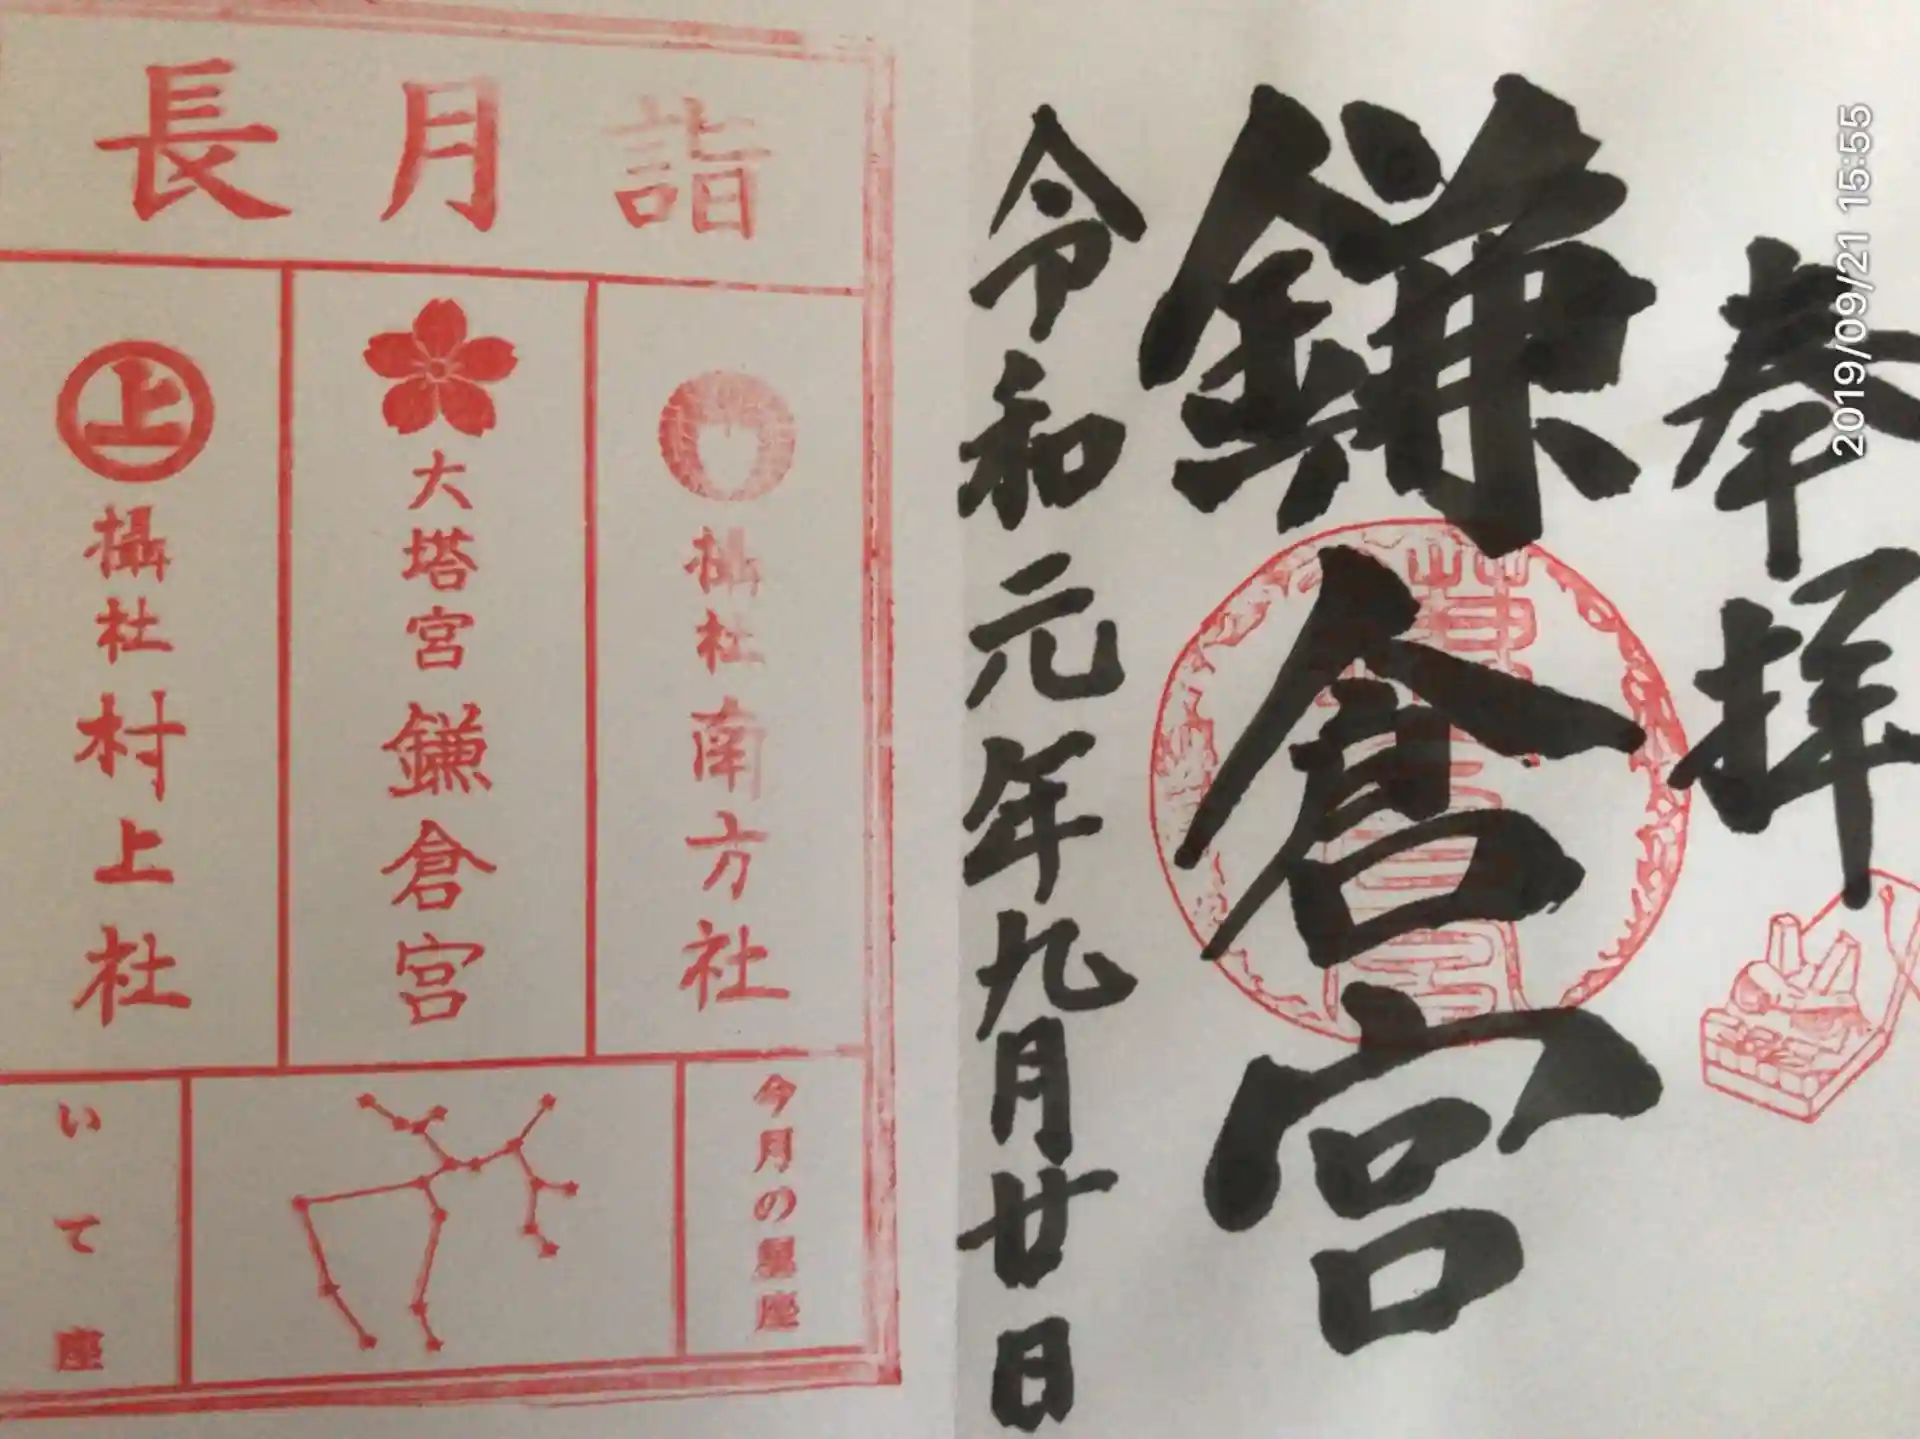 奉拝
鎌倉宮
令和元年九月廿日
長月詣
攝社南方社
大塔宮鎌倉宮
上
攝社村上社
今月の星座
いて座
2019/09/21 15:55